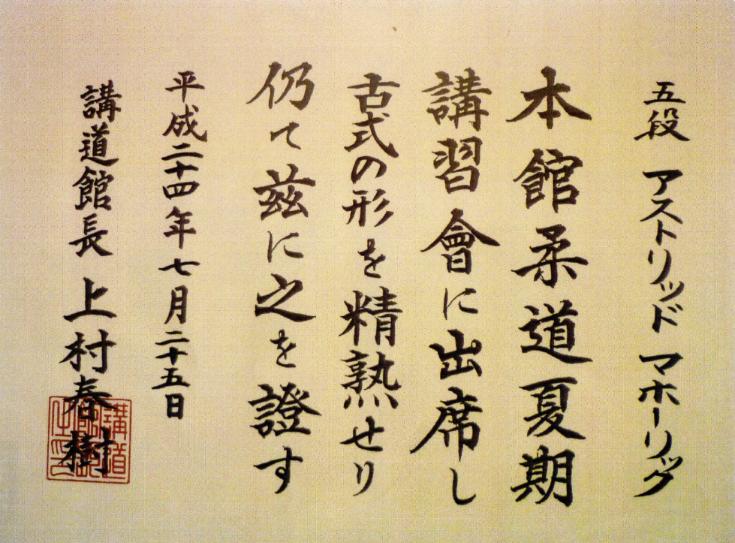 五段 アストリッド マホーリック
本館柔道夏期
講習會に出席し
古式の形を精熟せり
仍て茲に之を證す
平成二十四年七月二十五日
講道館長 上村春樹